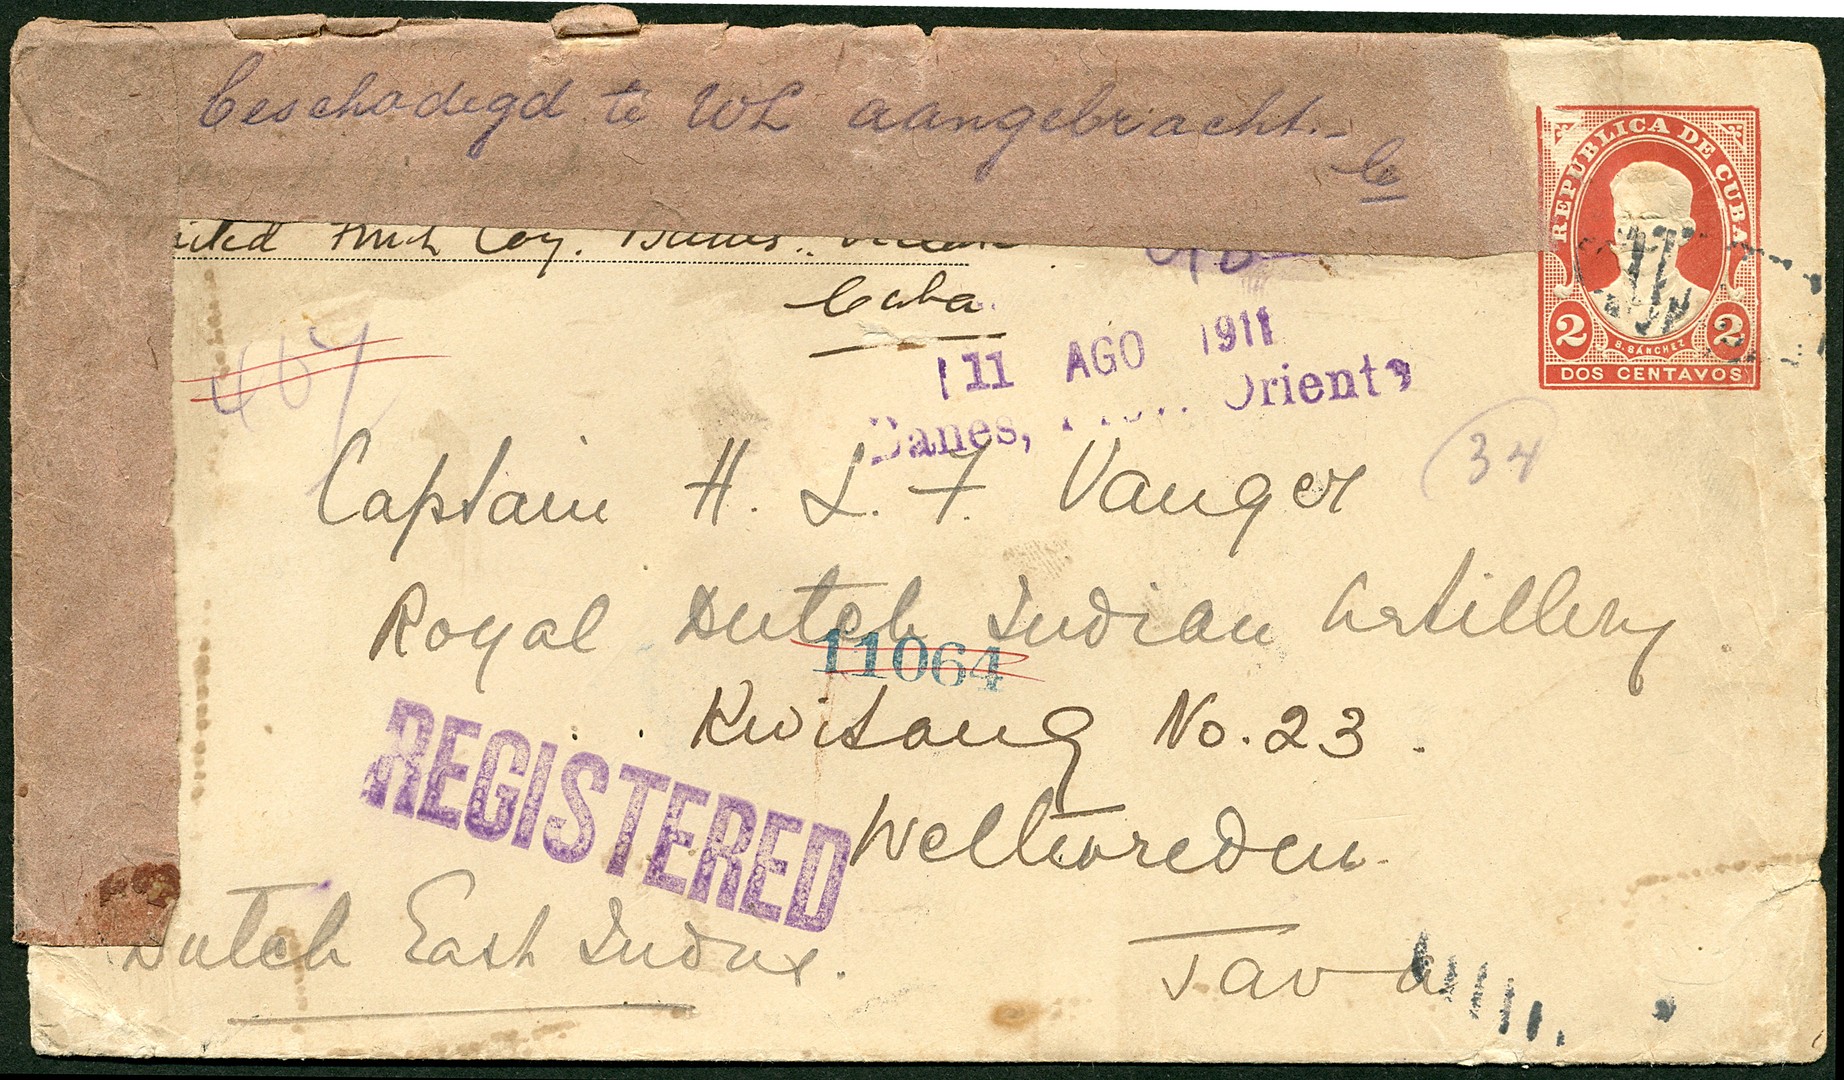 Beschadigd te WL aangebracht.-
REPUBLICA DE CUBA
Coy. Banes.
Cuba.
2 2
B. SÁNCHEZ
DOS CENTAVOS
11 AGO 1911
Banes, Oriente
34
Captain H. L. F. Vanger
Royal Dutch Indian Artillery
11064
Kwitang No. 23.
REGISTERED
Weltevreden.
Dutch East Indies.
Java